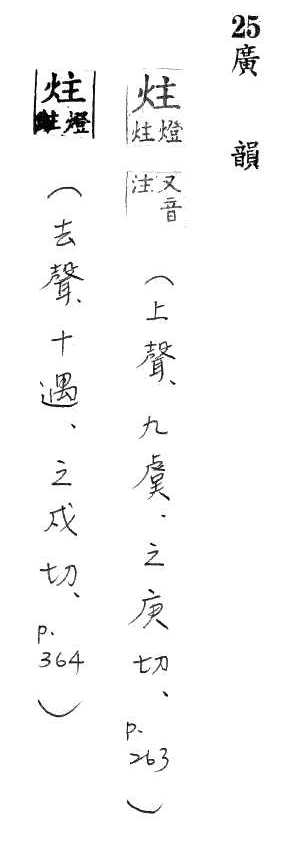 25廣韻
炷 燈炷 又音注（上聲、九麌、之庾切、p.263）
炷 燈（去聲、十遇、之戍切、p.364）